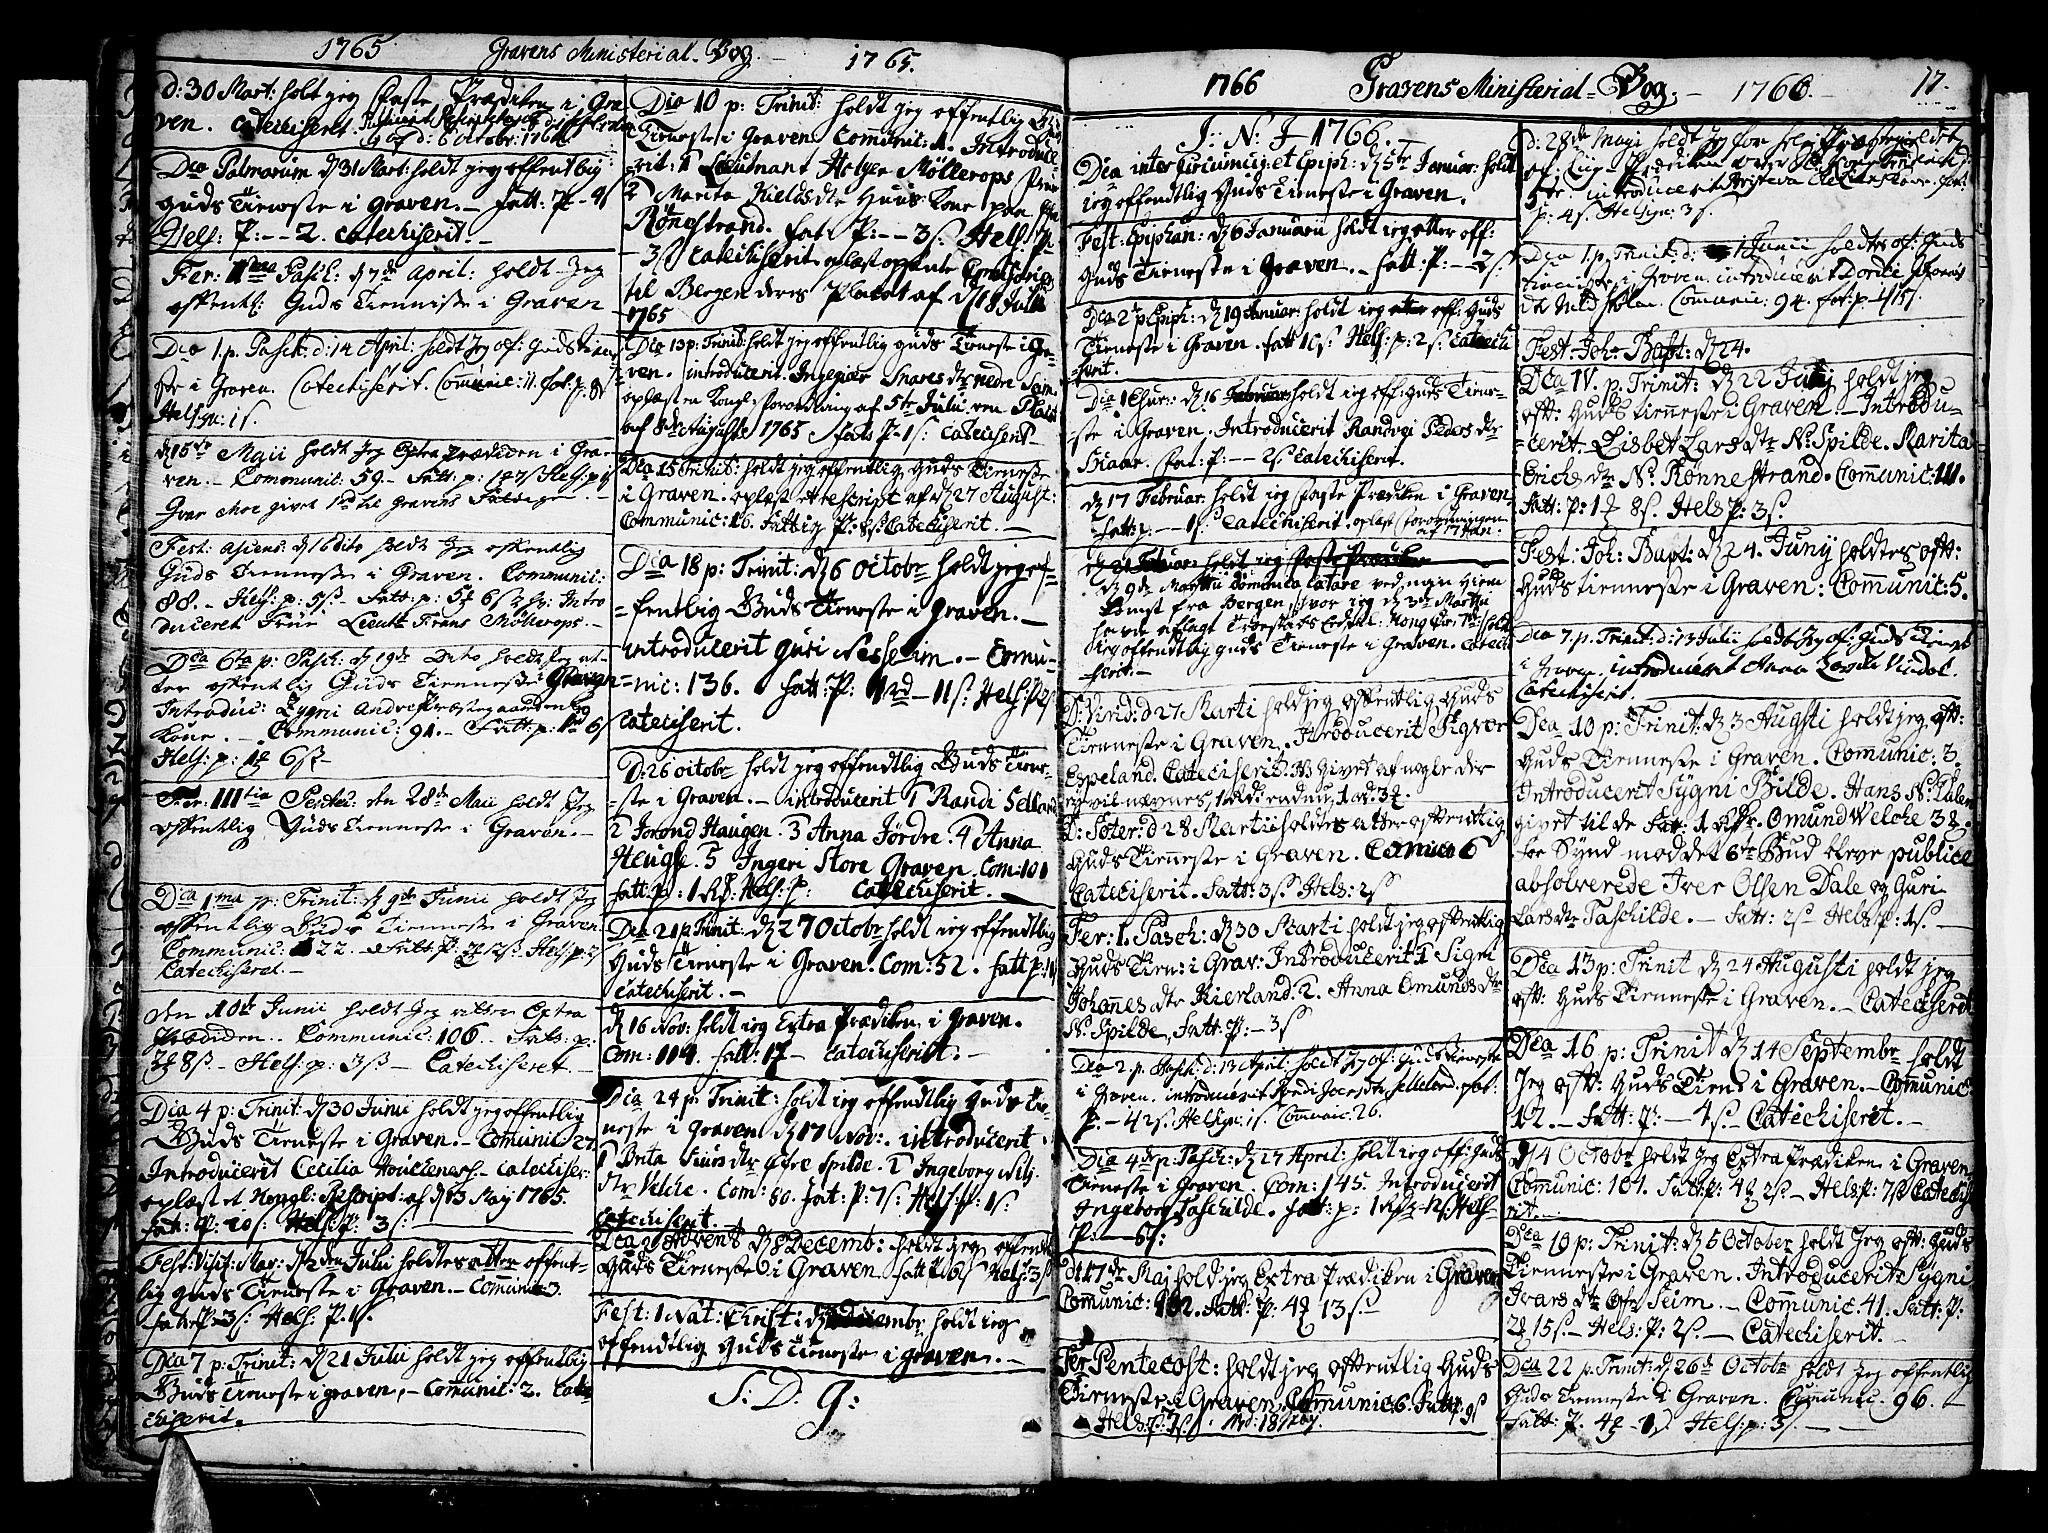 1765 Gravens Ministerial-Bog. 1765.
d: 30 Mart: holt jeg Faste Prædiken i Gra-
ven. Catechiseret
af d: 6 Octobr: 1764.
Dca Palmarum d 31 Mart: holdt jeg offentlig
Guds Tieneste i Graven. – Fatt: P –
Hels: P: – – 2. Catechiserit. –
Fer: IIda Pasch: d 7de April: holdt Jeg
offentl: Guds Tienniste i Graven
Dca 1. p. Pasch: d: 14 April: holdt Jeg of: Guds Tiene
ste i Graven. Catechiserit. Com̄unic: 11. fat: p. 8s
Hels: p: 1s.
d 15de Maii holdt Jeg Extra Prædiken i Gra-
ven. – Communic: 59. – Fatt: p:
Ivar Moe givet 1rd til Gravens Fattige –
Fest: Ascens: d 16 dito holdt Jeg offentlig
Guds Tienneste i Graven. Communic:
88. – Hels: p: 5ß – Fatt: p: 6ß Intro
duceret Frue Lieut: Frans Möllerops. –
Dca 6ta p: Pasch: d 19de Dito holdt Jeg at-
ter offentlig Guds Tienneste i Graven
Introduc: Sygni Andre Præstegaarden
Kone. – Communic: 91. – Fatt: p: 1rd 6s
Hels: p: 6ß –
Fer: IIItia Pentec: den 28de Maii holdt Jeg
offentlig Guds Tienneste i Graven. –
Dca 1ma p: Trinit: d 9de Junii holdt Jeg
offentlig Guds Tienneste i Graven
Communic: 122. Fatt: P: 12ß Hels: p:
Catechiseret. –
den 10de Junii holdt Jeg atter Extra
Prædiken. Communic: 106. Fatt: p:
8ß – Hels: p: 3ß – Catechiseret. –
Dca 4 p: Trinit: d 30 Junii holdt jeg offentlig
Guds Tieneste i Graven. – Com̄unic 27.
Introducerit Cecilia Houchenæs. – Catechiser:
oplæst et Kongl: Rescript: af d 3 May 1765
Fat: P: 10s: Hels: P: 3s:
Fest: Visit: Mar: d 2den Julii holdtes atter offent-
lig Guds Tieneste i Graven. – Com̄unic: 3.
Fat: P: 3s: Hels: P. 1s.
Dca 7 p: Trinit: d 21 Julii holdt jeg offentlig
Guds Tieneste i Graven, – Comunic: 2. Cate
chiserit.
Dca 10 p: Trinit: holdt jeg offentlig Guds
Tieneste i Graven. Com̄unic: 1. Introduce
rit: 1 Lieutnant Holger Möllerops Frue
2 Marita Kields dtr Huus Kone paa
Rönestrand. Fat P: – – 3s: Hels: P
– 3s: Catechiserit oplæst
til Bergen deris Placat af d 18 Julii
1765
Dca 13 p: Trinit: holdt jeg offentlig Guds Tieneste i Gra-
ven. introducerit. Ingebiær Snares dtr nedre Seim.
oplæst en Kongl: Forordning af 5te Julii en Placat
af 8de Augusti 1765 Fatt: P: 1s: Catechiserit –
Dca 15 Trinit: holdt jeg offentlig Guds Tieneste
i Graven. oplæst et rescript af d 27 August:
Communic: 16. Fattig P: 8s: Catechiserit. –
Dca 18 p: Trinit: d 6 Octobr holdt jeg of-
fentlig Guds Tieneste i Graven. –
introducerit Guri Nesheim. – Com̄u-
nic: 136. Fatt: P: 1rd – 11s: Hels: P 2s
Catechiserit.
D: 26 octobr holdt jeg offendtlig Guds Tiene-
ste i Graven. – introducerit 1 Randi Selland
2 Jorond Haugen. 3 Anna Jördre. 4 Anna
Heugle. 5 Ingeri Store Graven. Com: 101
Fatt: P: 1 Hels: P: Catechiserit. –
Dca 21 p Trinit: d 27 Octobr holdt jeg offendtlig
Guds Tieneste i Graven. Com: 52. Fatt P:
Catechiserit. –
d 16 Nov: holdt jeg Extra Prædiken i Graven.
Com: 114. Fatt: – Catechiserit. –
Dca 24 p: Trinit: holdt jeg offendtlig Guds Tie-
neste i Graven d 17 Nov: introducerit
1 Brita Siurs dtr Øfre Spilde. 2 Ingeborg Nils
dtr Velche. Com: 80. Fat: P: 7s: Hels: P: 1s:
Catechiserit.
Dca 2 Advent d 8 Decemb: holdt jeg offendtl
Guds Tieneste i Graven Fatt P 6s Hels: 3s
Fest: 1 Nat: Christi: d Decembr holdt jeg
offendtlig Guds Tieneste i Graven. –
S: D. G:
1766 Gravens Ministerial-Bog. – 1766. 17.
J: N: J – 1766.
Dca inter Circumcis: et Epiph: d 5te Januar: holdt
jeg offendtlig Guds Tieneste i Graven.
Fest: Epiphan: d 6 Januarii holdt jeg atter off:
Guds Tieneste i Graven. – Fatt: P: – 2s:
Dca 2 p Epiph: d 19 Januar: holdt jeg off: Guds
Tieneste i Graven. Fatt 10s: Hels: P: 2s: Catechi
serit.
Dca d 16 Februar: holdt jeg off: Guds Tiene-
ste i Graven. Introducerit Randvei Peders dtr
Haar. Fat: P: – – 2s Catechiserit.
d 17 Februar: holdt jeg Faste Prædiken i Graven.
Fatt: P: – 1s: Catechiserit. oplæst Forordningen
af 17 Jan:
d 21 Februar holdt jeg Faste Prædiken
d 9de Martii Dominica Lætare ved min Hiem
komst fra Bergen, hvor jeg d 3de Martii
havde aflagt Troeskabs Eeden: Kong Chr: 7de holdt
jeg offendtlig Guds Tieneste i Graven. Catechi
serit. –
D: Virid: d 27 Marti hold jeg offentlig Guds
Tienneste i Graven. Introducerit Sigvor
Espeland. Catechiserit. givet af nogle der
ey vil nævnes, 1 Rd endnu 1 ort 3s.
D: Soter: d 28 Martii holdtes atter offentlig
Guds Tienneste i Graven. Com̄unic 6
Catechiserit. Fatt: 3s Hels: 2s
Fer: 1. Pasch: d 30 Marti holdt jeg offentlig
Guds Tien: i Grav: Introducerit 1 Sigri
Johannes dtr Kierland. 2. Anna Omunds dtr
N: Spilde, Fatt: P: – 3s
Dca 2 p. Pasch: d: 13 April: holdt Jeg of: Guds Tieneste
i Graven. introduceret Randi Joers dtr Selleland. fat:
P. – 42s. Hels: gn: 1s. Communic: 26.
Dca 4de p: Pasch: d 27 April: holdt jeg off: Guds
Tieneste i Graven. Com: 145. Introducerit
Ingeborg Taschilde. Fatt: p: 12s: Hels-
P. – 6s:
d 17de Maj hold jeg Extra Prædiken i Graven
Com̄unic: 132. Fatt: P: 13s –
Fer Pentecost: holdt jeg offentlig Guds
Tieneste i Graven. Com̄unic: 6. Fatt: P: 9s
Hels: P: 7s. d: 18 May.
d: 28de Maji holdt Jeg
af Liig-Prædiken over Sl: Kong Friderich d:
5te. introducerit p:
p: 4s. Hels: gn: 3s.
Dca 1. p. Trinit: d: 1 Junii holdtes of: Guds
tieneste i Graven. introduceret Dordei
Com̄unic: 94. fat: p – 4
Fest: Joh: Bapt: d 24.
Dca IV. p. Trinit: d 22 Junij holdt jeg
off: Guds tienneste i Graven. – Introdu-
cerit. Lisbet Lars dtr N: Spilde. Marita
Erichs dtr N: Rønnestrand. Com̄unic: 111.
Fatt: P: 1 8s. Hels P: 3s.
Fest: Joh: Bapt: d 24. Junij holdtes off:
Guds tienneste i Graven: Com̄unic: 5.
Dca 7. p. Trinit: d: 13 Julii holdt Jeg of: Guds Tienest
i Graven. introduceret Anna Vindal.
Catechiserit.
Dca 10 p: Trinit: d 3 Augusti holdt jeg off:
Guds Tienneste i Graven. Com̄unic: 3.
Introducerit Sygni Bilde. Hans N:
givet til de Fatt: 1 Omund Welche 3
for Synd mod det 6te Bud bleve publice
absolverede Iver Olsen Dale og Guri
Lars dtr Taschilde. – Fatt: 2s Hels P: 1s –
Dca 13 p: Trinit d 24 Augusti holdt jeg
off: Guds Tienneste i Graven. – Catechiserit
Dca 16 p: Trinit d 14 Septembr holdt
Jeg off: Guds Tien: i Graven. – Com̄unic
12. – Fatt: P: – 4s Catechiseret. –
d 4 Octobr holdt Jeg Extra Prædiken i Graven
Com̄unic: 101. Fatt: P: 2s – Hels P: 7s Catechise
rit.
Dca 19 p: Trinit: d 5 October holdt Jeg off: Guds
Tienneste i Graven. Introducerit Sygni
Ivars dtr Øfr Seim. – Com̄unic: 41. Fatt: P.
15s. – Hels: P: 2s. – Catechiserit. –
Dca 22 p: Trinit: d 26de Octobr holdt Jeg offentlig
Guds Tienneste i Graven. Communic. 96. –
Fatt: P. Hels: p: 3s. –